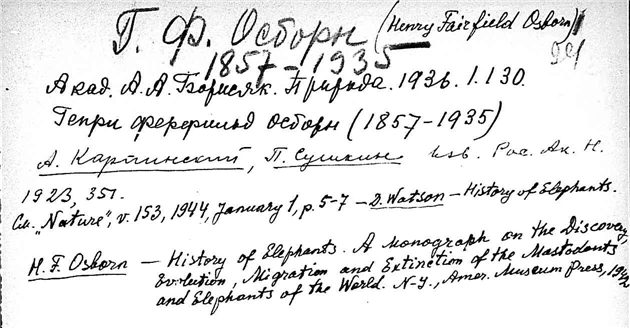 Г. Ф. Осборн (Henry Fairfield Osborn)
1857-1935
Акад. А. А. Борисяк. Природа. 1936. 1. 130.
Генри Ферфильд Осборн (1857-1935)
А. Карпинский, П. Сушкин Изв. Рос. Ак. Н.
1923, 351.
См. „Nature", v. 153, 1944, January 1, p. 5-7 – D. Watson – History of Elephants.
H. F. Osborn – History of Elephants. A Monograph on the Discovery,
Evolution, Migration and Extinction of the Mastodonts
and Elephants of the World. N-Y., Amer. Museum Press, 1942